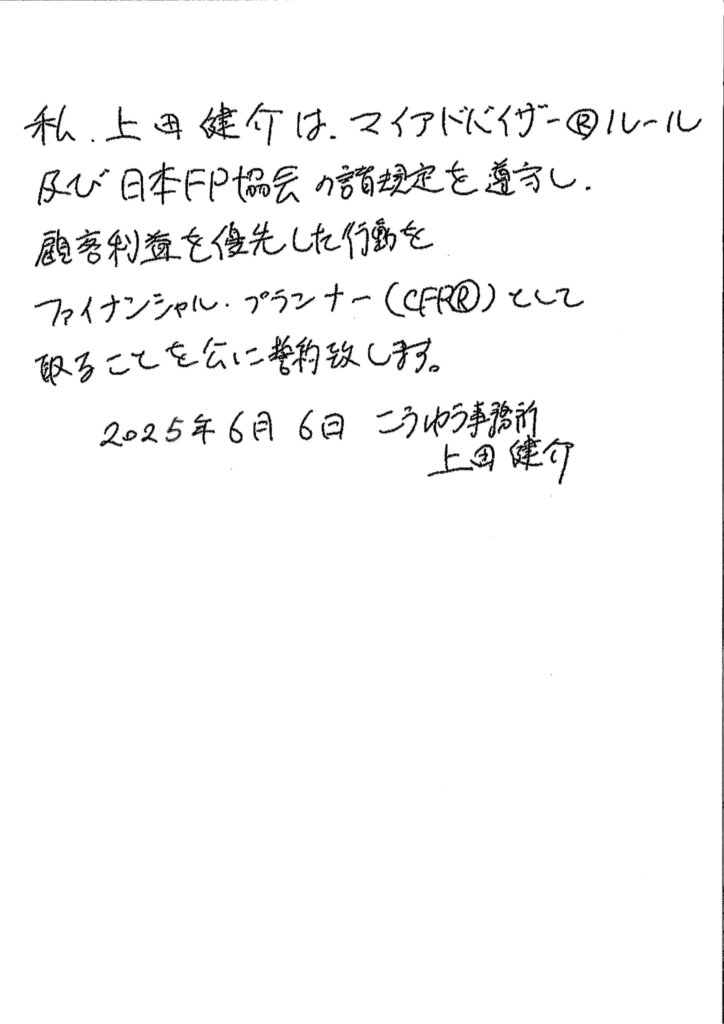 私、上田健介は、マイアドバイザー®ルール
及び日本FP協会の諸規定を遵守し、
顧客利益を優先した行動を
ファイナンシャル・プランナー(CFP®)として
取ることを公に誓約致します。
2025年6月6日 こうゆう事務所
上田健介